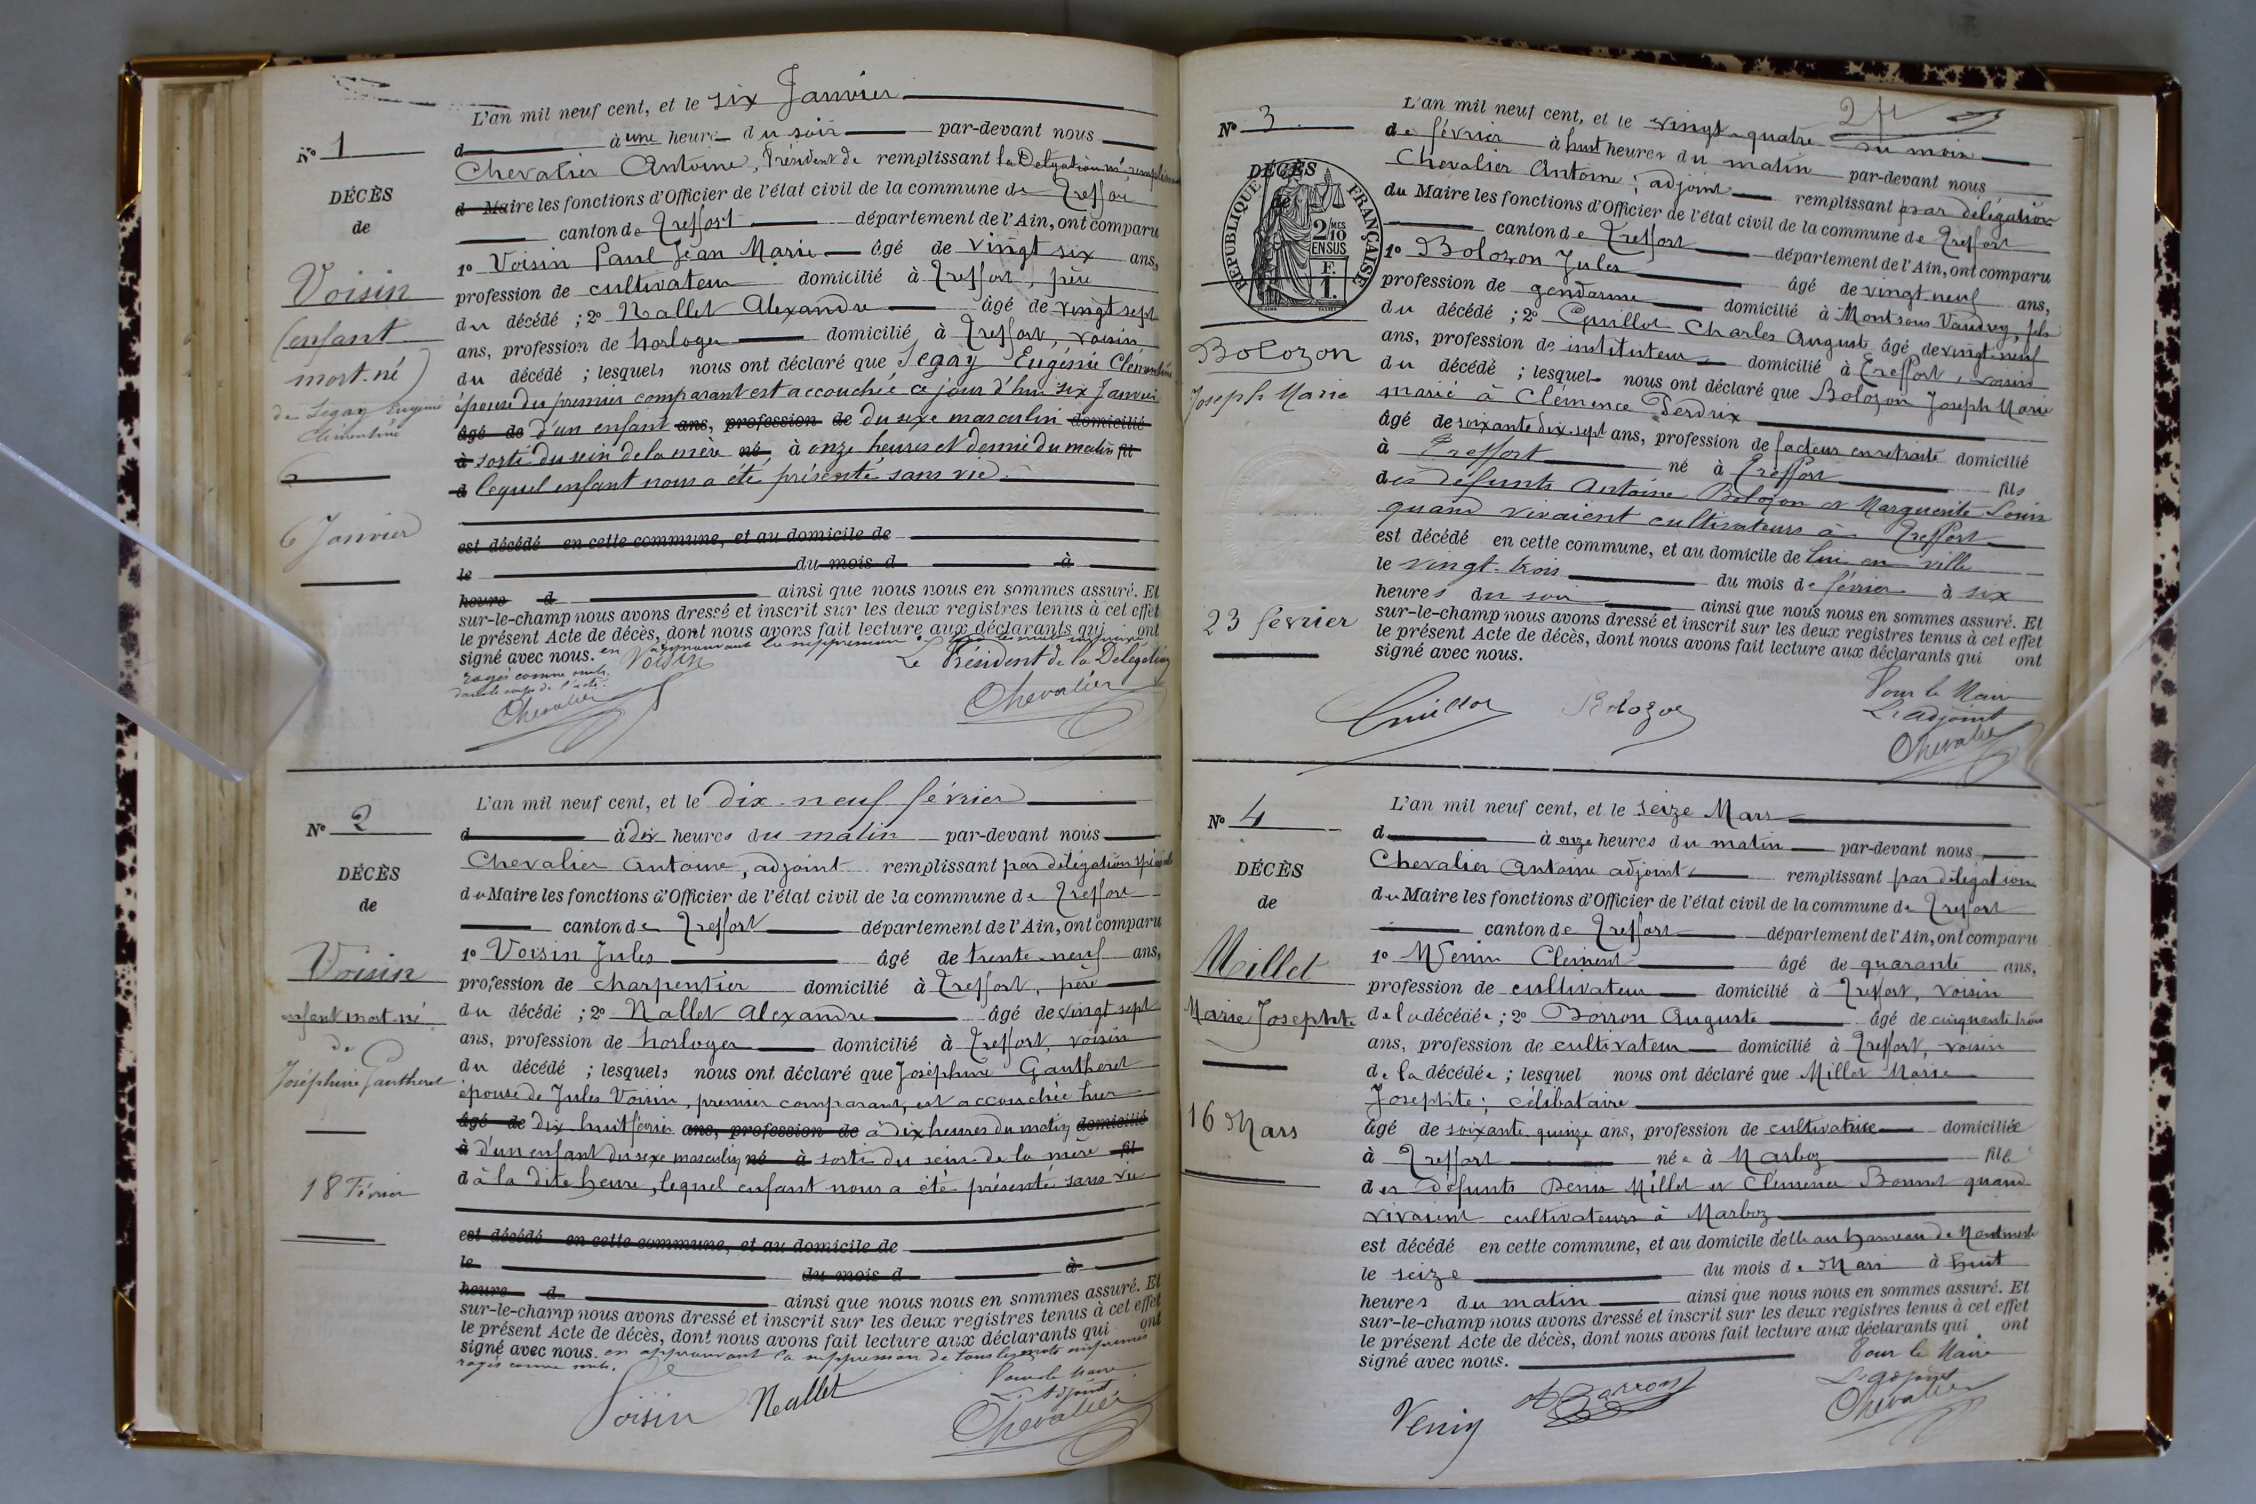 L'an mil neuf cent, et le six Janvier
N° 1
d à une heure du soir par-devant nous
Chevalier Antoine, Président de remplissant la Délégation
DÉCÈS
d Maire les fonctions d'Officier de l'état civil de la commune de Treffort
de
canton de Treffort département de l'Ain, ont comparu
1° Voisin Paul Jean Marie âgé de vingt six ans,
Voisin
profession de cultivateur domicilié à Treffort, père
(enfant
du décédé ; 2° Nallet Alexandre âgé de vingt sept
mort-né)
ans, profession de horloger domicilié à Treffort, voisin
du décédé ; lesquels nous ont déclaré que Segay Eugénie Clémentine
de Segay Eugénie
Clémentine
épouse du premier comparant est accouchée ce jour d'hui six Janvier
âgé de d'un enfant ans, profession de du sexe masculin domicilié
à sorti du sein de la mère né, à onze heures et demie du matin fil
d lequel enfant nous a été présenté sans vie.
6 Janvier
est décédé en cette commune, et au domicile de
le du mois d à
heure d ainsi que nous nous en sommes assuré. Et
sur-le-champ nous avons dressé et inscrit sur les deux registres tenus à cet effet
le présent Acte de décès, dont nous avons fait lecture aux déclarants qui ont
signé avec nous. en approuvant la suppression
rayés comme nuls
dans le corps de l'acte.
Voisin
Le Président de la Délégation
Chevalier
Chevalier
L'an mil neuf cent, et le dix-neuf février
N° 2
d à dix heures du matin par-devant nous
Chevalier Antoine, adjoint remplissant par délégation spéciale
DÉCÈS
du Maire les fonctions d'Officier de l'état civil de la commune de Treffort
de
canton de Treffort département de l'Ain, ont comparu
1° Voisin Jules âgé de trente-neuf ans,
Voisin
profession de charpentier domicilié à Treffort, père
enfant mort-né
du décédé ; 2° Nallet Alexandre âgé de vingt sept
de
ans, profession de horloger domicilié à Treffort, voisin
Joséphine Gautheret
du décédé ; lesquels nous ont déclaré que Joséphine Gautheret
épouse de Jules Voisin, premier comparant, est accouchée hier
âgé de dix-huit février ans, profession de à dix heures du matin domicilié
à d'un enfant du sexe masculin né à sorti du sein de la mère fil
18 Février
d à la dite heure, lequel enfant nous a été présenté sans vie
est décédé en cette commune, et au domicile de
le du mois d à
heure d ainsi que nous nous en sommes assuré. Et
sur-le-champ nous avons dressé et inscrit sur les deux registres tenus à cet effet
le présent Acte de décès, dont nous avons fait lecture aux déclarants qui ont
signé avec nous. en approuvant la suppression de tous les mots imprimés
rayés comme nuls.
Voisin Nallet
Pour le Maire
L'Adjoint
Chevalier
2 ft
L'an mil neuf cent, et le vingt-quatre du mois
N° 3
de février à huit heures du matin par-devant nous
DÉCÈS
de
RÉPUBLIQUE FRANÇAISE
2/10 MES
EN SUS
F. 1.
Chevalier Antoine, adjoint remplissant par délégation
du Maire les fonctions d'Officier de l'état civil de la commune de Treffort
canton de Treffort département de l'Ain, ont comparu
1° Bolozon Jules âgé de vingt neuf ans,
profession de gendarme domicilié à Mont sous Vaudrey, fils
du décédé ; 2° Guillot Charles Auguste âgé de vingt-neuf
ans, profession de instituteur domicilié à Treffort, voisin
Bolozon
du décédé ; lesquels nous ont déclaré que Bolozon Joseph Marie
Joseph Marie
marié à Clémence Perdrix
âgé de soixante dix-sept ans, profession de facteur en retraite domicilié
à Treffort né à Treffort fils
des défunts Antoine Bolozon et Marguerite
quand vivaient cultivateurs à Treffort
est décédé en cette commune, et au domicile de lui en ville
le vingt-trois du mois de février à six
23 février
heures du soir ainsi que nous nous en sommes assuré. Et
sur-le-champ nous avons dressé et inscrit sur les deux registres tenus à cet effet
le présent Acte de décès, dont nous avons fait lecture aux déclarants qui ont
signé avec nous.
Guillot Bolozon
Pour le Maire
L'adjoint
Chevalier
L'an mil neuf cent, et le seize Mars
N° 4
d à onze heures du matin par-devant nous
Chevalier Antoine adjoint remplissant par délégation
DÉCÈS
du Maire les fonctions d'Officier de l'état civil de la commune de Treffort
de
canton de Treffort département de l'Ain, ont comparu
1° Venin Clément âgé de quarante ans,
Millet
profession de cultivateur domicilié à Treffort, voisin
Marie Josephte
de la décédée ; 2° Borron Auguste âgé de cinquante trois
ans, profession de cultivateur domicilié à Treffort, voisin
de la décédée ; lesquel nous ont déclaré que Millet Marie
Josephte ; célibataire
16 Mars
âgé de soixante quinze ans, profession de cultivatrice domiciliée
à Treffort née à Marboz fille
des défunts Denis Millet et Clémence Bonnet quand
vivaient cultivateurs à Marboz
est décédé en cette commune, et au domicile d'elle au hameau de
le seize du mois de Mars à huit
heures du matin ainsi que nous nous en sommes assuré. Et
sur-le-champ nous avons dressé et inscrit sur les deux registres tenus à cet effet
le présent Acte de décès, dont nous avons fait lecture aux déclarants qui ont
signé avec nous.
Venin A Barron
Pour le Maire
L'adjoint
Chevalier